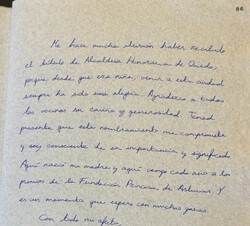 86
Me hace mucha ilusión haber recibido
el título de Alcaldesa Honoraria de Oviedo,
porque desde que era niña, venir a esta ciudad
siempre ha sido una alegría. Agradezco a todos
los vecinos su cariño y generosidad. Tened
presente que este nombramiento me compromete
y soy consciente de su importancia y significado.
Aquí nació mi madre y aquí vengo cada año a los
premios de la Fundación Princesa de Asturias. Y
es un momento que espero con muchas ganas.
Con todo mi afecto,